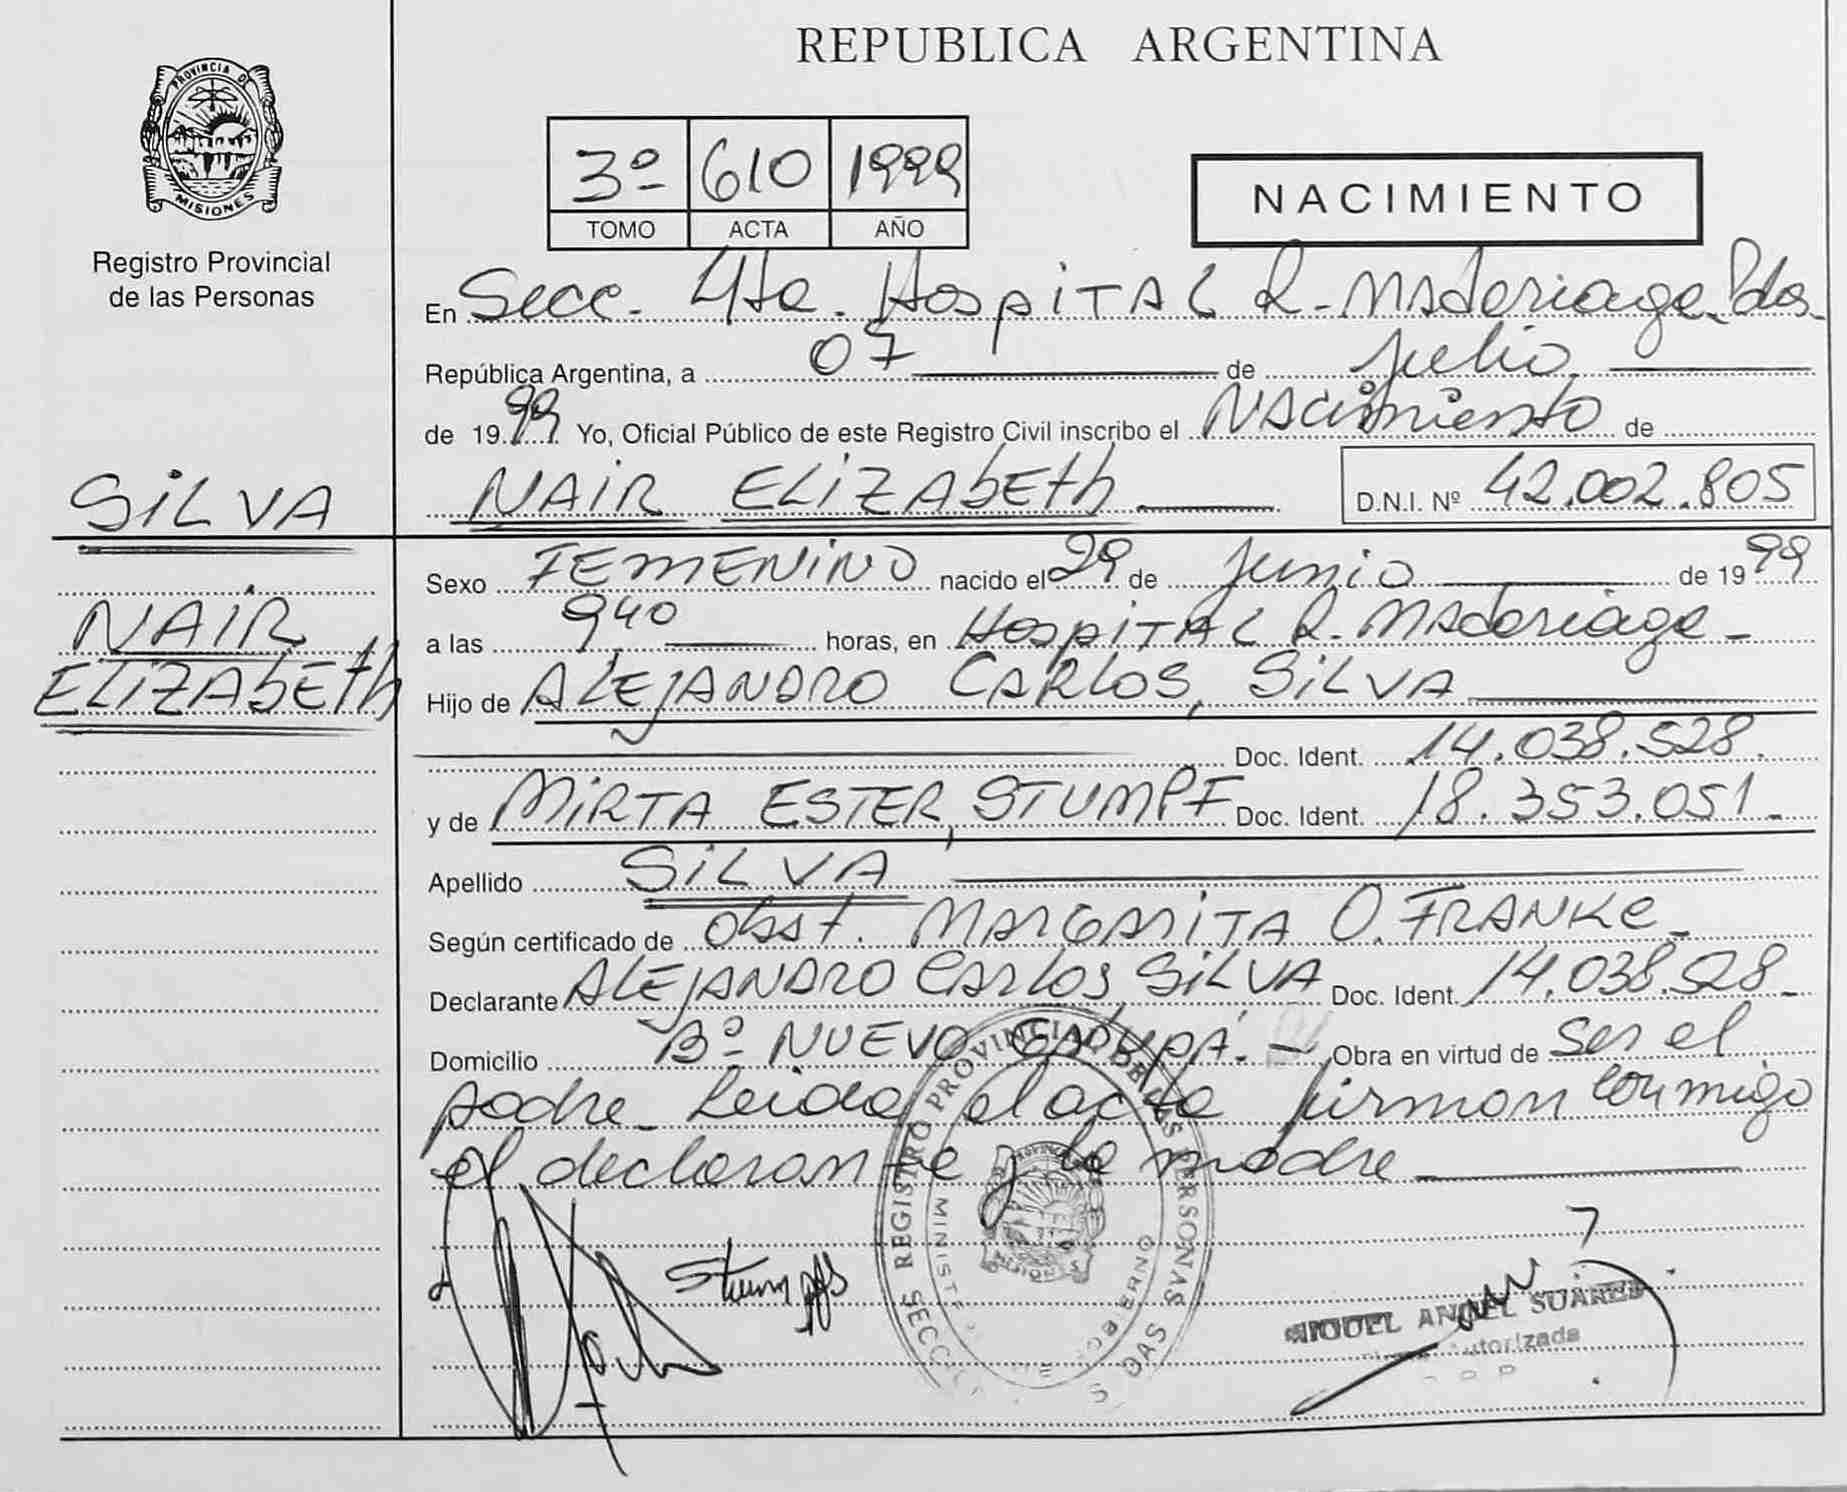 REPUBLICA ARGENTINA
PROVINCIA DE
MISIONES
Registro Provincial
de las Personas
3º 610 1999
TOMO ACTA AÑO
NACIMIENTO
En Secc. 4ta. Hospital R. Madariaga_Pdas_
República Argentina, a 07 de julio
de 1999 Yo, Oficial Público de este Registro Civil inscribo el Nacimiento de
NAIR ELIZAbEth D.N.I. Nº 42.002.805
SiLVA
NAIR
ELIZAbEth
Sexo FEMENINO nacido el 29 de junio de 1999
a las 9,40 horas, en Hospital R. Madariaga_
Hijo de ALEJANDRO CARLOS, SiLVA
Doc. Ident. 14.038.528.
y de MIRTA ESTER, STUMPF Doc. Ident. 18.353.051_
Apellido SiLVA
Según certificado de Obst. MARGARITA O. FRANKE_
Declarante ALEJANDRO CARLOS SiLVA Doc. Ident. 14.038.528_
Domicilio Bº NUEVO Obra en virtud de ser el
padre_ Leida el acta firman conmigo
el declarante y la madre
REGISTRO PROVINCIAL DE LAS PERSONAS
Stumpf
MIGUEL ANGEL SUAREZ
Autorizada